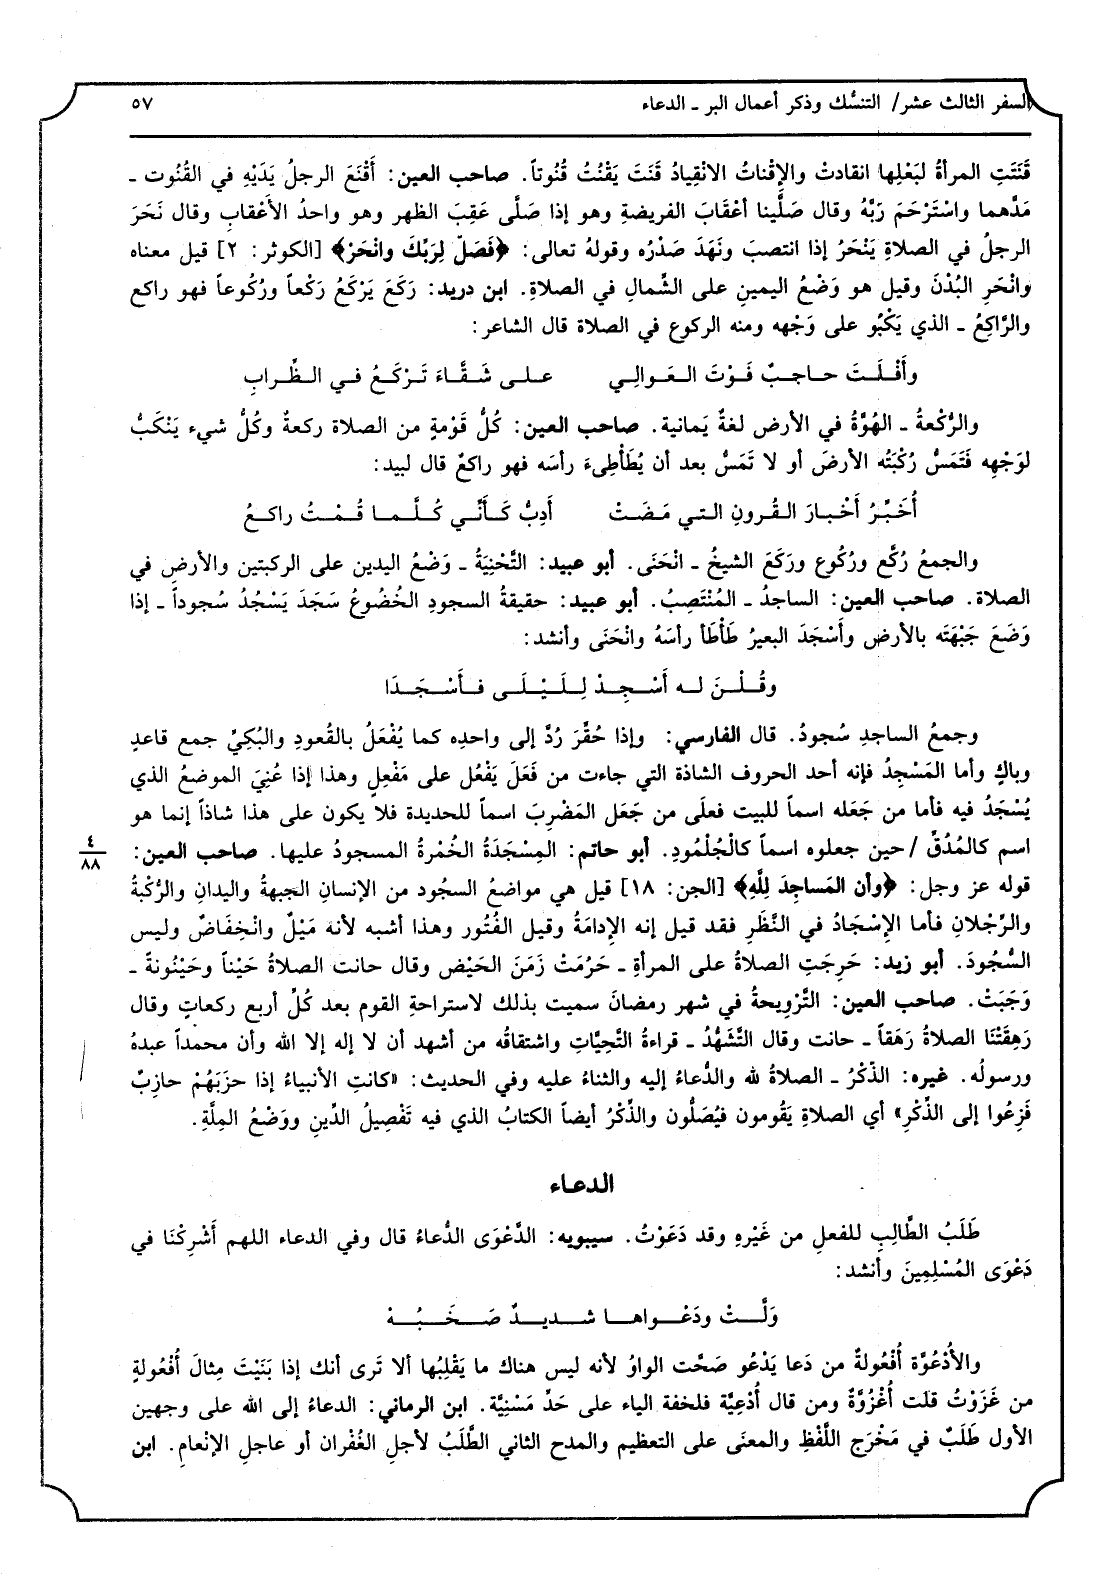 السفر الثالث عشر/ التنسُّك وذكر أعمال البر ـ الدعاء ٥٧
قَنَتَتِ المرأةُ لبَعْلِها انقادتْ والإِقْناتُ الانْقِيادُ قَنَتَ يَقْنُتُ قُنُوتاً. صاحب العين: أَقْنَعَ الرجلُ يَدَيْهِ في القُنُوت ـ
مَدَّهما واسْتَرْحَمَ رَبَّهُ وقال صَلَّينا أعْقَابَ الفريضةِ وهو إذا صَلَّى عَقِبَ الظهر وهو واحدُ الأَعْقابِ وقال نَحَرَ
الرجلُ في الصلاةِ يَنْحَرُ إذا انتصبَ ونَهَدَ صَدْرُه وقولهُ تعالى: ﴿فَصَلِّ لِرَبِّكَ وانْحَرْ﴾ [الكوثر: ٢] قيل معناه
وانْحَرِ البُدْنَ وقيل هو وَضْعُ اليمينِ على الشِّمالِ في الصلاةِ. ابن دريد: رَكَعَ يَرْكَعُ رَكْعاً ورُكُوعاً فهو راكع
والرَّاكِعُ ـ الذي يَكْبُو على وَجْهه ومنه الركوع في الصلاة قال الشاعر:
وأَفْلَتَ حاجبٌ فَوْتَ العَوالِي على شَقَّاءَ تَرْكَعُ في الظِّرابِ
والرُّكْعةُ ـ الهُوَّةُ في الأرض لغةٌ يَمانية. صاحب العين: كُلُّ قَوْمةٍ من الصلاة ركعةٌ وكُلُّ شيء يَنْكَبُّ
لوَجْهِه فَتَمَسُّ رُكْبَتُه الأرضَ أو لا تَمَسُّ بعد أن يُطَأْطِىءَ رأسَه فهو راكعٌ قال لبيد:
أُخَبِّرُ أَخْبارَ القُرونِ التي مَضَتْ أَدِبُّ كَأَنِّي كُلَّما قُمْتُ راكعُ
والجمعُ رُكَّع ورُكُوع ورَكَعَ الشيخُ ـ انْحَنَى. أبو عبيد: التَّحْنِيَةُ ـ وَضْعُ اليدين على الركبتين والأرض في
الصلاة. صاحب العين: الساجدُ ـ المُنْتَصِبُ. أبو عبيد: حقيقةُ السجودِ الخُضُوعُ سَجَدَ يَسْجُدُ سُجوداً ـ إذا
وَضَعَ جَبْهَتَه بالأرض وأَسْجَدَ البعيرُ طَأْطَأَ رأسَهُ وانْحَنَى وأنشد:
وقُلْنَ له أَسْجِدْ لِلَيْلَى فأَسْجَدَا
وجمعُ الساجدِ سُجودٌ. قال الفارسي: وإذا حُقِّرَ رُدَّ إلى واحدِه كما يُفْعَلُ بالقُعودِ والبُكِيِّ جمع قاعدٍ
وباكٍ وأما المَسْجِدُ فإنه أحد الحروف الشاذة التي جاءت من فَعَلَ يَفْعُل على مَفْعِلٍ وهذا إذا عُنِيَ الموضعُ الذي
يُسْجَدُ فيه فأما من جَعَله اسماً للبيت فعلَى من جَعَل المَضْرِبَ اسماً للحديدة فلا يكون على هذا شاذاً إنما هو
اسم كالمُدُقِّ /حين جعلوه اسماً كالْجُلْمُودِ. أبو حاتم: المِسْجَدَةُ الخُمْرةُ المسجودُ عليها. صاحب العين:
٤
٨٨
قوله عز وجل: ﴿وأن المَساجِدَ لِلَّهِ﴾ [الجن: ١٨] قيل هي مواضعُ السجُود من الإنسانِ الجبهةُ واليدان والرُّكْبةُ
والرِّجْلانِ فأما الإِسْجادُ في النَّظَرِ فقد قيل إنه الإدامةُ وقيل الفُتُور وهذا أشبه لأنه مَيْلٌ وانْخِفَاضٌ وليس
السُّجُودَ. أبو زيد: حَرِجَتِ الصلاةُ على المرأةِ ـ حَرُمَتْ زَمَنَ الحَيْض وقال حانت الصلاةُ حَيْناً وحَيْنُونةً ـ
وَجَبَتْ. صاحب العين: التَّرْوِيحةُ في شهر رمضانَ سميت بذلك لاستراحةِ القوم بعد كُلِّ أربع ركعاتٍ وقال
رَهِقَتْنَا الصلاةُ رَهَقاً ـ حانت وقال التَّشَهُّدُ ـ قراءةُ التَّحِيَّاتِ واشتقاقُه من أشهد أن لا إله إلا الله وأن محمداً عبدهُ
ورسولُه. غيره: الذِّكْرُ ـ الصلاةُ لله والدُّعاءُ إليه والثناءُ عليه وفي الحديث: «كانتِ الأنبياءُ إذا حزَبَهُمْ حازِبٌ
فَزِعُوا إلى الذِّكْرِ» أي الصلاةِ يَقُومون فيُصَلُّون والذِّكْرُ أيضاً الكتابُ الذي فيه تَفْصِيلُ الدِّينِ ووَضْعُ المِلَّةِ.
الدعاء
طَلَبُ الطَّالِبِ للفعلِ من غَيْرِه وقد دَعَوْتُ. سيبويه: الدَّعْوَى الدُّعاءُ قال وفي الدعاء اللهم أَشْرِكْنَا في
دَعْوَى المُسْلِمِينَ وأنشد:
وَلَّتْ ودَعْواها شديدٌ صَخَبُهْ
والأُدْعُوَّة أُفْعُولةٌ من دَعا يَدْعُو صَحَّت الواوُ لأنه ليس هناك ما يَقْلِبُها ألا تَرى أنك إذا بَنَيْتَ مِثالَ أُفْعُولةٍ
من غَزَوْتُ قلت أُغْزُوَّةٌ ومن قال أُدْعِيَّة فلخفة الياء على حَدِّ مَسْنِيَّة. ابن الرماني: الدعاءُ إلى الله على وجهين
الأول طَلَبٌ في مَخْرَج اللَّفْظِ والمعنَى على التعظيم والمدح الثاني الطَّلَبُ لأجلِ الغُفْران أو عاجلِ الإنْعامِ. ابن